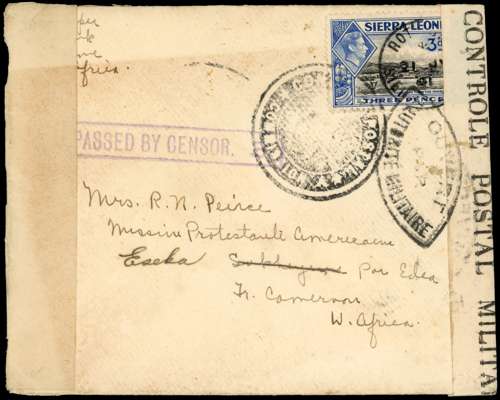 Africa.
SIERRA LEONE
3d
THREE PENCE
PASSED BY CENSOR.
OUVERT
AUTORITE MILITAIRE
CONTROLE POSTAL MILITAI
Mrs. R. N. Peirce
Mission Protestante Americaine
Eseka Par Edea
Fr. Cameroun
W. Africa.